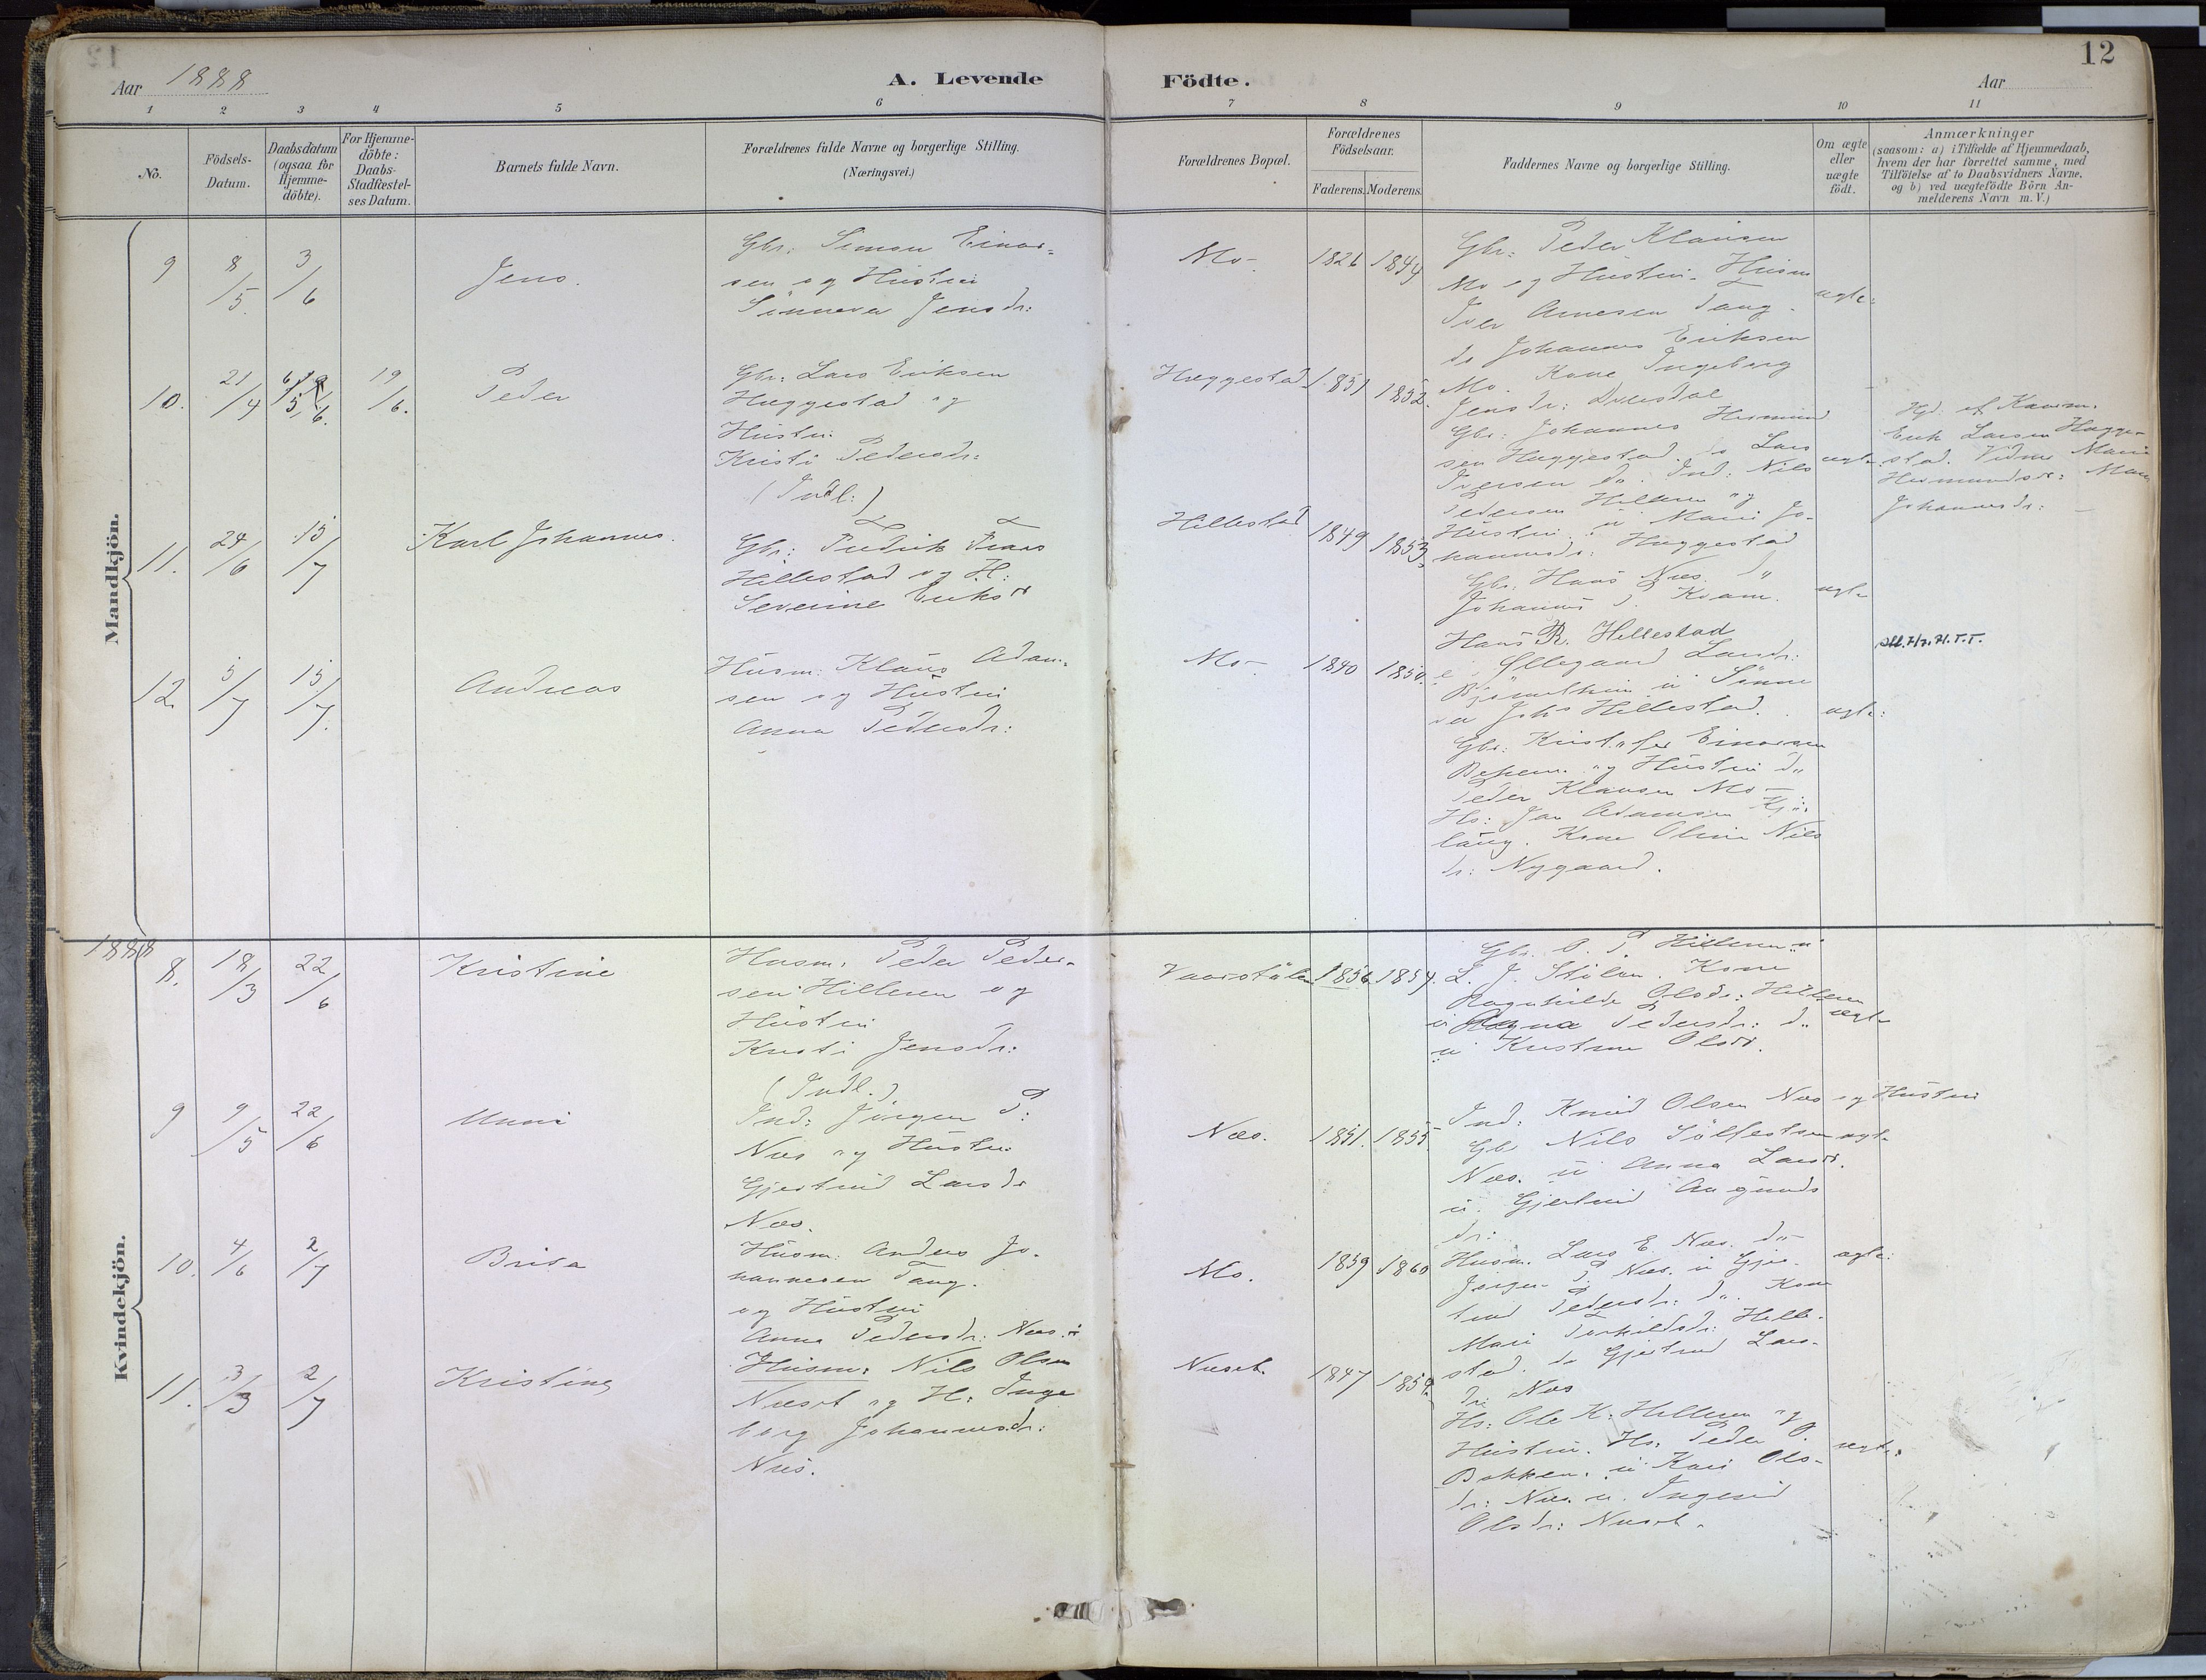 12
Aar 1888
A. Levende Födte.
Aar
1 2 3 4 5 6 7 8 9 10 11
No.
Födsels-Datum.
Daabsdatum (ogsaa for Hjemme-döbte).
For Hjemme-döbte: Daabs-Stadfæstel-ses Datum.
Barnets fulde Navn.
Forældrenes fulde Navne og borgerlige Stilling.
(Næringsvei.)
Forældrenes Bopæl.
Forældrenes Födselsaar.
Faderens. Moderens.
Faddernes Navne og borgerlige Stilling.
Om ægte eller uægte födt.
Anmærkninger
(saasom: a) i Tilfælde af Hjemmedaab,
hvem der har forrettet samme, med
Tilföielse af to Daabsvidners Navne.
og b) ved uægtefödte Börn An-
melderens Navn m. V.)
Mandkjön.
9 8/5. 3/6 Jens.
Gbr: Simon Einar-
sen og Hustru
Sünneva Jensdr:
Mo- 1826 1844
Gbr: Peder Klausen
Mo og Hustru. Husm
Iver Arnesen Tang.
do Johannes Eriksen
Mo. Kone Ingeborg
Jensdr:
ægte:
10. 21/4 6/5 19/6. Peder
Gbr: Lars Eriksen
Hæggestad og
Hustru
Kristi Pedersdr:
(Indl:)
Hæggestad 1851 1852.
Gbr: Johannes Hermund
sen Hæggestad do Lars
Iversen do. Ind: Nils
Pedersen Hilleren og
Hustru u Mari Jo-
hannesdr: Hæggestad
ægte
Hjd. af Kaarm.
Erik Larsen Hægge-
stad. Vidner Mari
Hermundsdr: Mari
Johannesdr:
11. 24/6 15/7 Karl Johannes.
Gbr: Fredrik Frans
Hillestad og H:
Severine Eriksdr
Hillestad 1849 1853.
Gbr. Hans Næs. d"
Johannes J. Kvam.
Hans R. Hillestad
Ollegaard Larsdr:
u Sünne
va Johs Hillestad.
ægte
12. 5/7 15/7. Andreas
Husm: Klaus Adam-
sen og Hustru
Anna Pedersdr:
Mo- 1840 1850.
Gbr: Kristofer Einarsen
og Hustru d"
Peder Klausen Mo-
Hs: Jan Adamsen
laug. Kone Oline Nils
dr: Nygaard.
ægte:
1888
Kvindekjön.
8. 18/3 22/6 Kristine
Husm: Peder Peder-
sen Hilleren og
Hustru
Kristi Jensdr:
(Indl.)
Vaarstölen 1856 1854.
Gbr. O. P. Hilleren u
L. J. Stölen. Kone
Ragnhilde Olsdr: Hilleren
u Ragna Pedersdr: d"
u Kristine Olsdr.
ægte
9 9/5 22/6 Unni
Ind: Jörgen P:
Næs og Hustru
Gjertrud Larsdr
Næs.
Næs. 1851. 1855
Ind: Knud Olsen Næs og Hustru
Gb Nils Sölfestsen
Næs. u Anna Larsdr.
u. Gjertrud Angunds
dr:
ægte
10. 4/6 2/7 Brita
Husm: Anders Jo-
hannesen Tang.
og Hustru
Anna Pedersdr: Næs.
Mo. 1859 1860
Husm. Lars E. Næs. d"
Jörgen P. Næs. u Gjer-
trud Pedersdr: d". Kone
Mari Torkildsdr: Hille-
stad. do Gjertrud Lars-
dr: Næs
ægte:
11. 3/3 2/7 Kristine
Husm: Nils Olsen
Næset og H: Inge
borg Johannesdr:
Næs.
Næset. 1847 1859.
Hs: Ole K: Hilleren og
Hustru. Hs: Peder O.
Bakken. u Kari Ols-
dr: Næs. u. Ingerid
Olsdr: Næset.
ægte: